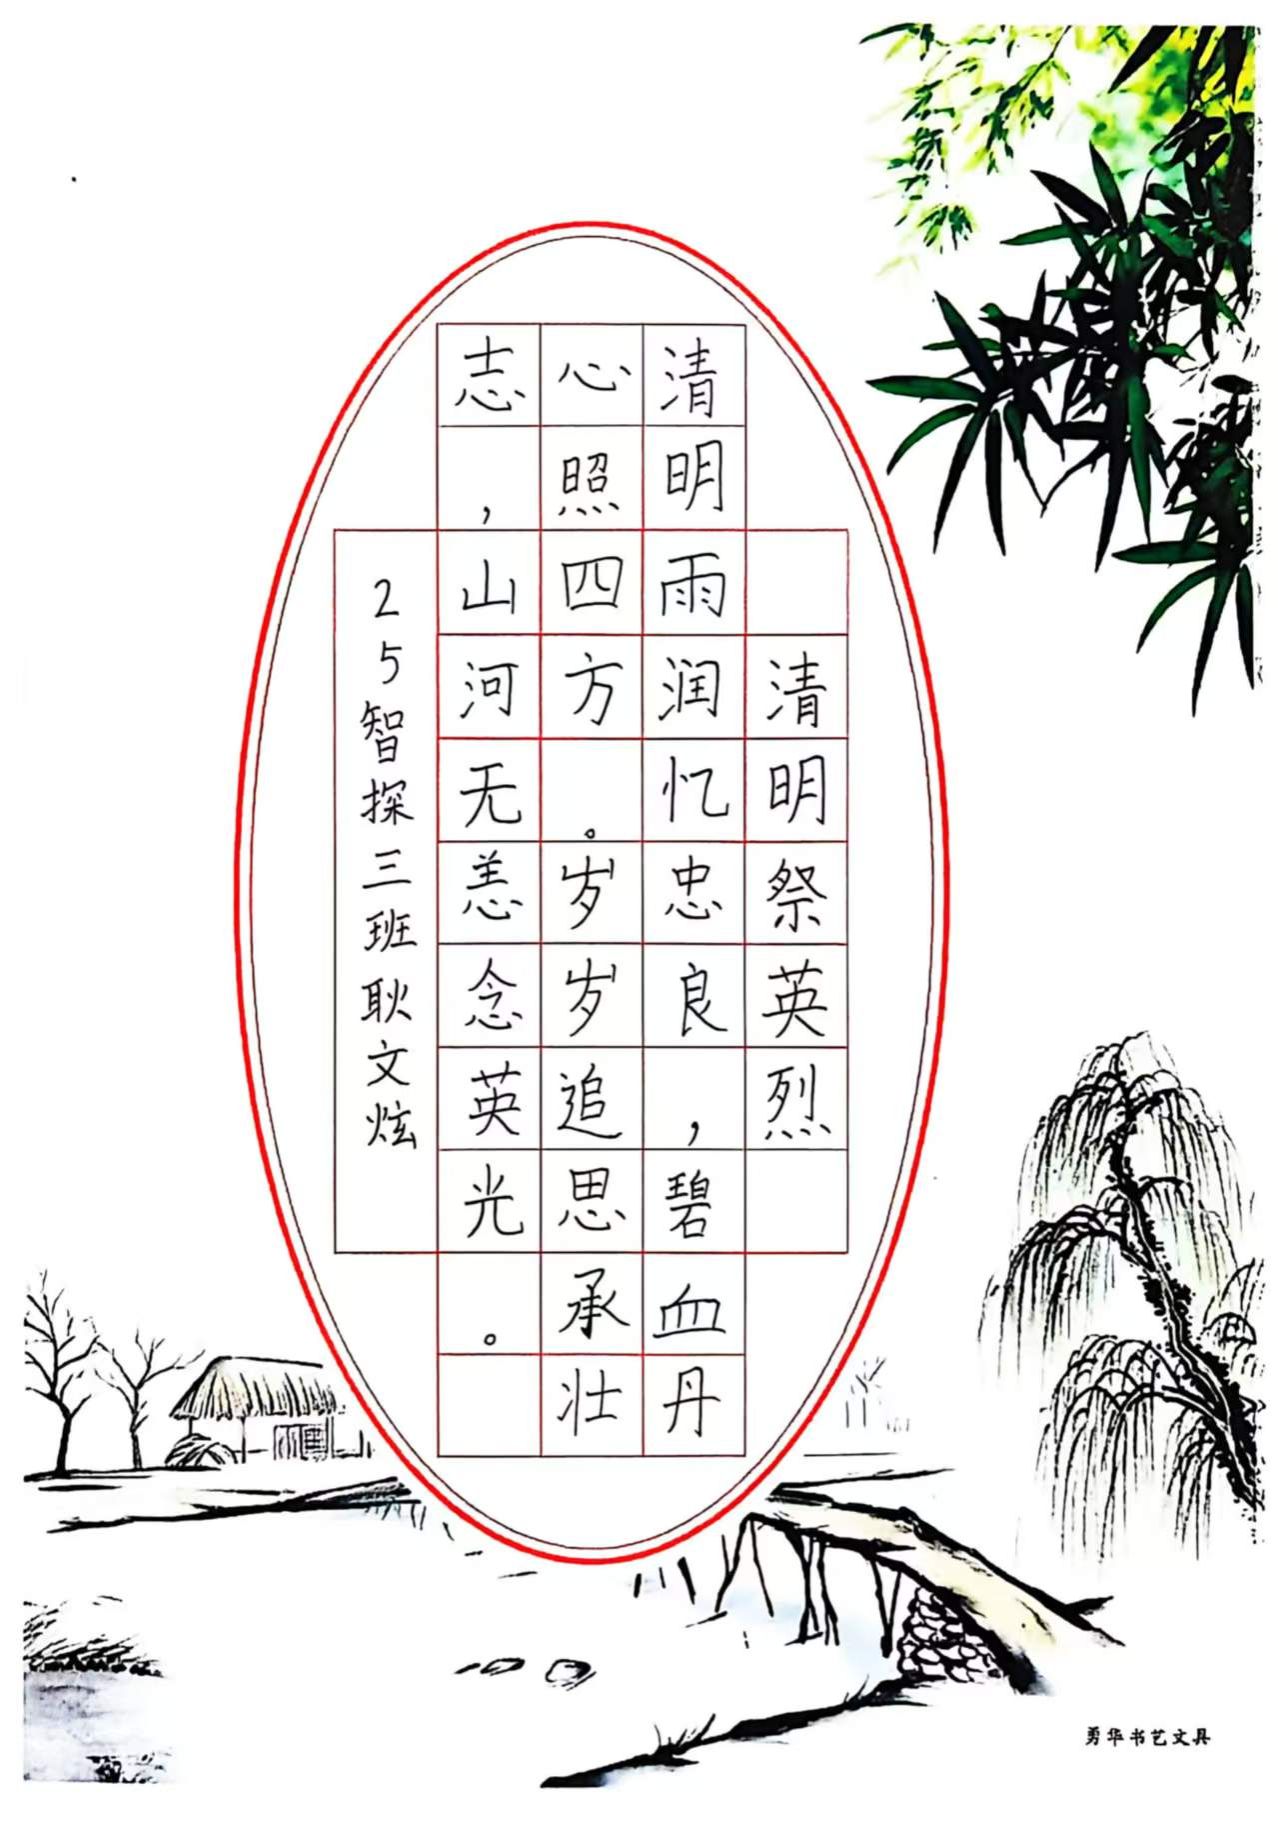 清明祭英烈
清明雨润忆忠良，碧血丹
心照四方。岁岁追思承壮
志，山河无恙念英光。
25智探三班耿文炫
勇华书艺文具